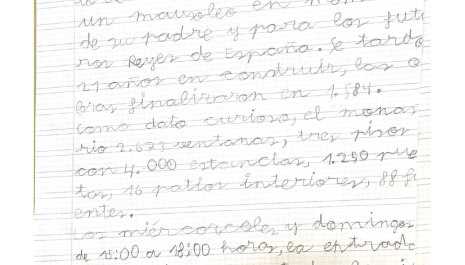 un mausoleo en
de su padre y para los futu
ros Reyes de España. Se tardo
21 años en construir, las o
bras finalizaron en 1.584.
Como dato curioso, el monas
rio 2.673 ventanas, tres pisos
con 4.000 estancias, 1.250 pue
tas, 16 patios interiores, 88 fu
entes.
Los miércoles y domingos
de 15:00 a 18:00 horas, la entrada